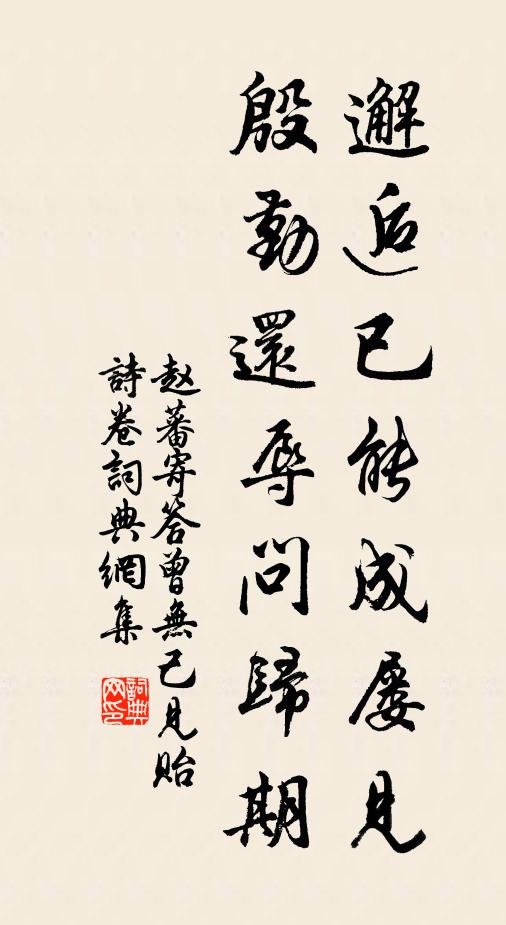 邂逅已能成屢見
殷勤還辱問歸期
赵蕃寄答曾無已見貽
詩卷詞典網集
詞典网印